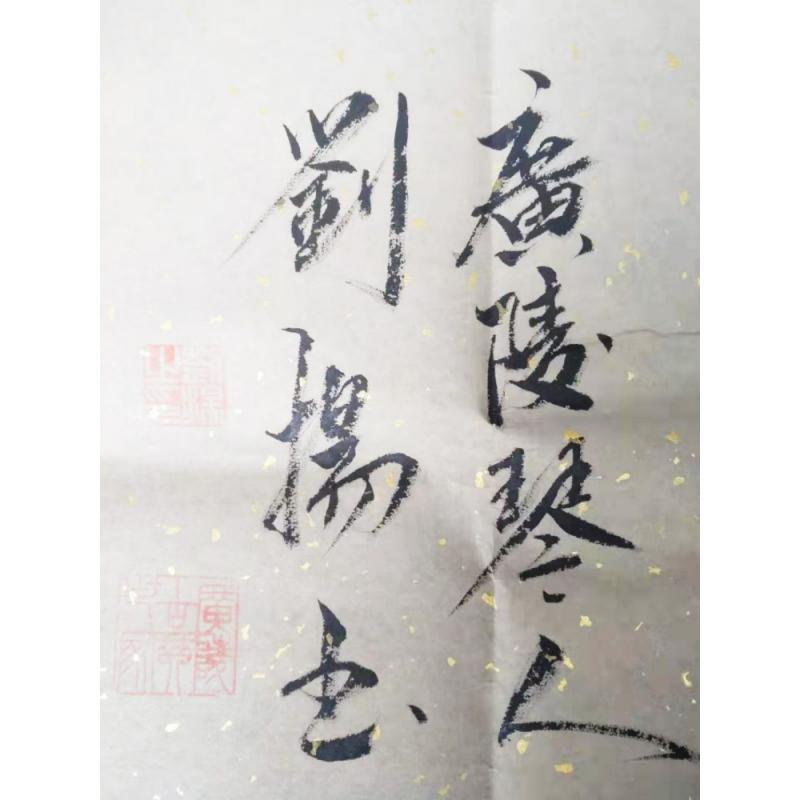 廣陵琴人
劉揚书